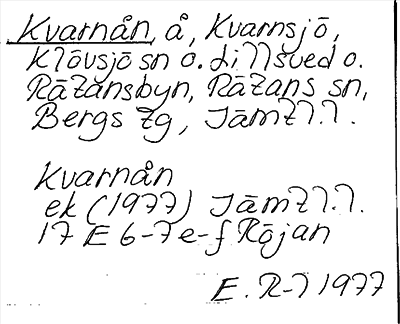 Kvarnån, å, Kvarnsjö,
Klövsjö sn o. Lillsved o.
Rätansbyn, Rätans sn,
Bergs tg, Jämtl.l.
Kvarnån
ek (1977) Jämtl.l.
17 E 6-7 e-f Röjan
E. R-l 1977